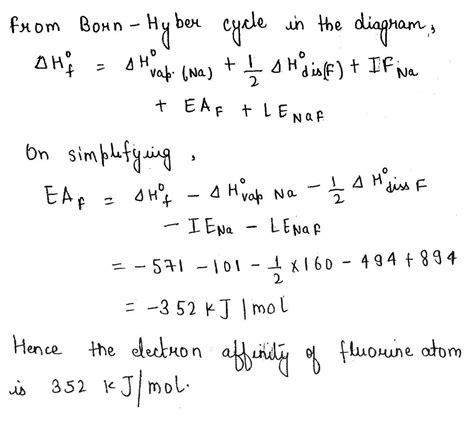 from Born - Hyber cycle in the diagram,
ΔH°f = ΔH°vap. (Na) + 1/2 ΔH°dis(F) + IF Na
+ EA F + LE NaF
On simplifying,
EA F = ΔH°f - ΔH°vap Na - 1/2 ΔH°diss F
- IE Na - LE NaF
= -571 -101 - 1/2 ×160 - 494 + 894
= -352 kJ/mol
Hence the electron affinity of fluorine atom
is 352 kJ/mol.